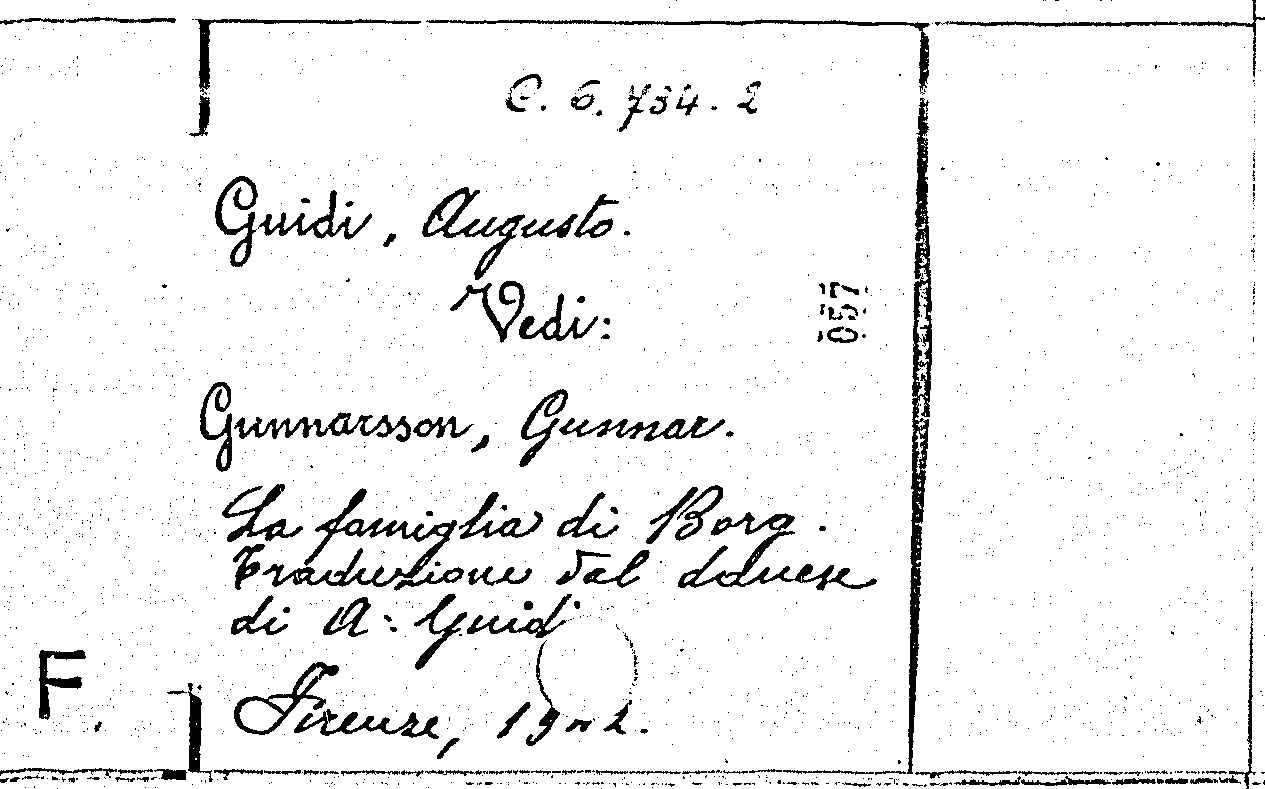 C. 6. 734. 2
Guidi, Augusto.
Vedi:
057
Gunnarsson, Gunnar.
La famiglia di Borg.
Traduzione dal danese
di A. Guidi
F.
Firenze,